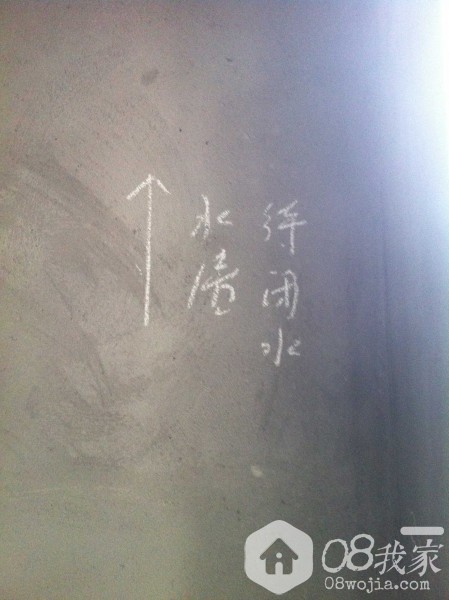 待闭水
水渍
08我家
08wojia.com